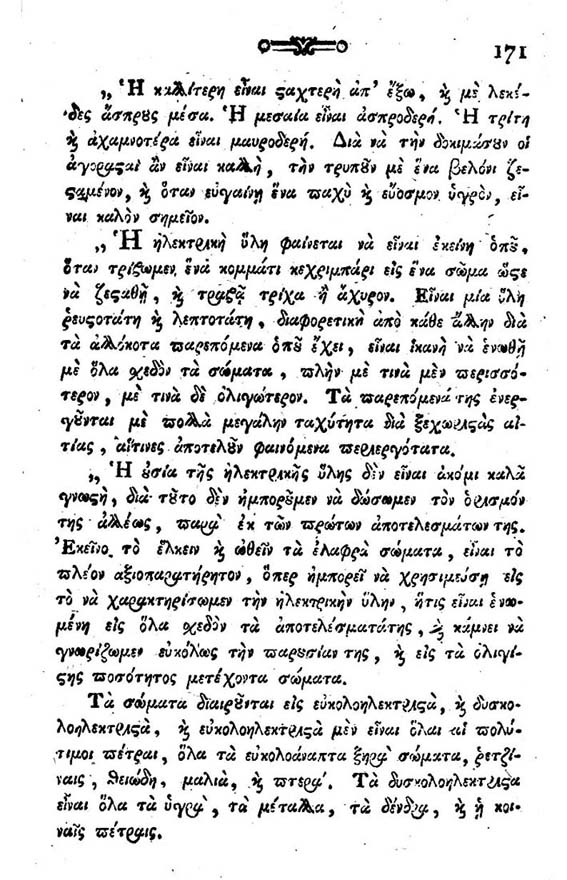 171
„ Ἡ καλλίτερη εἶναι ϛαχτερὴ ἀπ' ἔξω, ϗ μὲ λεκί-
δες ἄσπρȣς μέσα. Ἡ μεσαία εἶναι ἀσπροδερή. Ἡ τρίτη
ϗ ἀχαμνοτέρα εἶναι μαυροδερή. Διὰ νὰ τὴν δοκιμάσȣν οἱ
ἀγοραϛαὶ ἂν εἶναι καλλὴ, τὴν τρυπȣ͂ν μὲ ἕνα βελόνι ζε-
ϛαμένον, ϗ ὅταν εὐγαίνῃ ἕνα παχὺ ϗ εὔοσμον ὑγρὸν, εἶ-
ναι καλὸν σημεῖον.
„ Ἡ ἠλεκτρικὴ ὕλη φαίνεται νὰ εἶναι ἐκείνη ὁπȣ͂,
ὅταν τρίζωμεν ἕνα κομμάτι κεχριμπάρι εἰς ἕνα σῶμα ὥϛε
νὰ ζεϛαθῇ, ϗ τραβᾷ τρίχα ἢ ἄχυρον. Εἶναι μία ὕλη
ῥευϛοτάτη ϗ λεπτοτάτη, διαφορετικὴ ἀπὸ κάθε ἄλλην διὰ
τὰ ἀλλόκοτα παρεπόμενα ὁπȣ͂ ἔχει, εἶναι ἱκανὴ νὰ ἑνωθῇ
μὲ ὅλα σχεδὸν τὰ σώματα, πλὴν μὲ τινὰ μὲν περισσό-
τερον, μὲ τινὰ δὲ ὀλιγώτερον. Τὰ παρεπόμενά της ἐνερ-
γȣ͂νται μὲ πολλὰ μεγάλην ταχύτητα διὰ ξεχωριϛὰς αἰ-
τίας, αἵτινες ἀποτελȣ͂ν φαινόμενα περιεργότατα.
„ Ἡ ȣ̓σία τῆς ἠλεκτρικῆς ὕλης δὲν εἶναι ἀκόμι καλὰ
γνωϛὴ, διὰ τȣ͂το δὲν ἠμπορȣ͂μεν νὰ δώσωμεν τὸν ὁρισμόν
της ἀλλέως, παρὰ ἐκ τῶν πρώτων ἀποτελεσμάτων της.
Ἐκεῖνο τὸ ἕλκειν ϗ ὠθεῖν τὰ ἐλαφρὰ σώματα, εἶναι τὸ
πλέον ἀξιοπαρατήρητον, ὅπερ ἠμπορεῖ νὰ χρησιμεύσῃ εἰς
τὸ νὰ χαρακτηρίσωμεν τὴν ἠλεκτρικὴν ὕλην, ἥτις εἶναι ἑνω-
μένη εἰς ὅλα σχεδὸν τὰ ἀποτελέσματάτης, ϗ κάμνει νὰ
γνωρίζωμεν εὐκόλως τὴν παρȣσίαν της, ϗ εἰς τὰ ὀλιγί-
ϛης ποσότητος μετέχοντα σώματα.
Τὰ σώματα διαιρȣ͂νται εἰς εὐκολοηλεκτριϛὰ, ϗ δυσκο-
λοηλεκτριϛὰ, ϗ εὐκολοηλεκτριϛὰ μὲν εἶναι ὅλαι αἱ πολύ-
τιμοι πέτραι, ὅλα τὰ εὐκολοάναπτα ξηρὰ σώματα, ῥετζί-
ναις, θειώδη, μαλιὰ, ϗ πτερά. Τὰ δυσκολοηλεκτριϛὰ
εἶναι ὅλα τὰ ὑγρὰ, τὰ μέταλλα, τὰ δένδρα, ϗ ᾑ κοι-
ναῖς πέτραις.